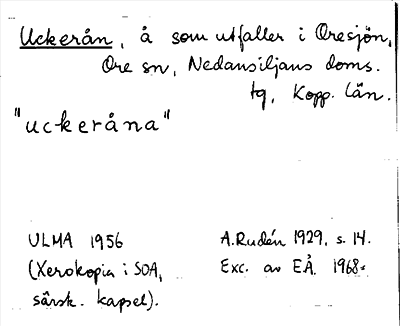 Uckerån, å som utfaller i Oresjön,
Ore sn, Nedansiljans doms.
tg, Kopp. län.
"uckeråna"
ULMA 1956
(Xerokopia i SOA,
särsk. kapsel).
A. Rudén 1929, s. 14.
Exc. av EÅ. 1968.